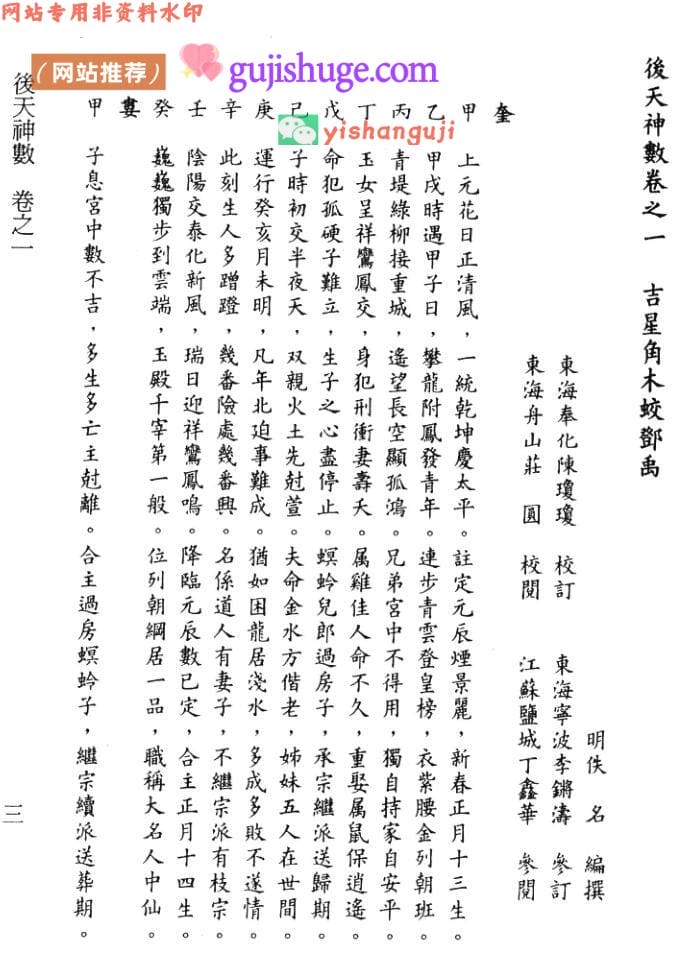 网站专用非资料水印
（网站推荐）
gujishuge.com
yishanguji
後天神數卷之一　吉星角木蛟鄧禹
明佚名　編撰
東海奉化陳瓊瓊　校訂　東海寧波李鏘濤　參訂
東海舟山莊圓　校閱　江蘇鹽城丁鑫華　參閱
奎
甲　上元花日正清風，一統乾坤慶太平。註定元辰煙景麗，新春正月十三生。
乙　甲戌時遇甲子日，攀龍附鳳發青年。連步青雲登皇榜，衣紫腰金列朝班。
丙　青堤綠柳接重城，遙望長空顯孤鴻。兄弟宮中不得用，獨自持家自安平。
丁　玉女呈祥鸞鳳交，身犯刑衝妻壽夭。属雞佳人命不久，重娶属鼠保逍遙。
戊　命犯孤硬子難立，生子之心盡停止。螟蛉兒郎過房子，承宗繼派送歸期。
己　子時初交半夜天，双親火土先尅萱。夫命金水方偕老，姊妹五人在世間。
庚　運行癸亥月未明，凡年北迫事難成。猶如困龍居淺水，多成多敗不遂情。
辛　此刻生人多蹭蹬，幾番險處幾番興。名係道人有妻子，不繼宗派有枝宗。
壬　陰陽交泰化新風，瑞日迎祥鸞鳳鳴。降臨元辰數已定，合主正月十四生。
癸　巍巍獨步到雲端，玉殿千宰第一般。位列朝綱居一品，職稱大名人中仙。
婁
甲　子息宮中數不吉，多生多亡主尅離。合主過房螟蛉子，繼宗續派送葬期。
後天神數　卷之一
三